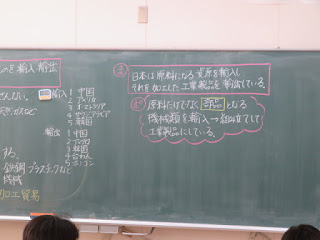 のを輸入 輸出
せんない。
天然ガスなど
輸入 1 中国
2 アメリカ
3 オーストラリア
4 サウジアラビア
5 韓国
輸出 1 中国
2 アメリカ
3 韓国
4 台わん
5 ホンコン
する。
鉄鋼 プラスチックなど
機械
加工貿易
ま 日本は原料になる資源を輸入し
それを加工した工業製品を輸出している。
原料だけでなく 部品となる
機械類を輸入→組み立てて
工業製品にしている。